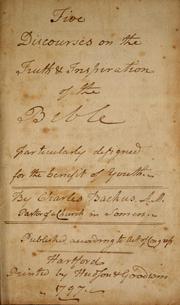 Five
Discourses on the
Truth & Inspiration
of the
Bible
particularly designed
for the benefit of Youth.
By Charles Backus, A.M.
Pastor of a Church in Somers.
Published according to Act of Congress
Hartford
Printed by Hudson & Goodwin
1797.